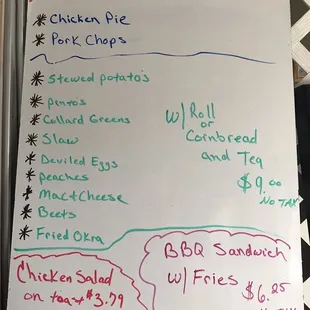 * Chicken Pie
* Pork Chops
* Stewed potato's
* pintos
* Collard Greens
* Slaw
* Deviled Eggs
* peaches
* Mac+Cheese
* Beets
* Fried Okra
w/ Roll
or
Cornbread
and Tea
$9.00
NO TAX
Chicken Salad
on toast $3.79
BBQ Sandwich
w/ Fries
$6.25